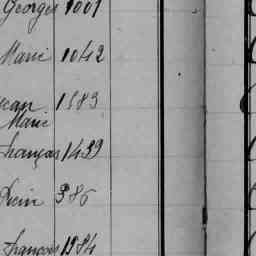 Georges 1001
Marie 1042
Jean 1583
Marie
François 1439
386
François 1984